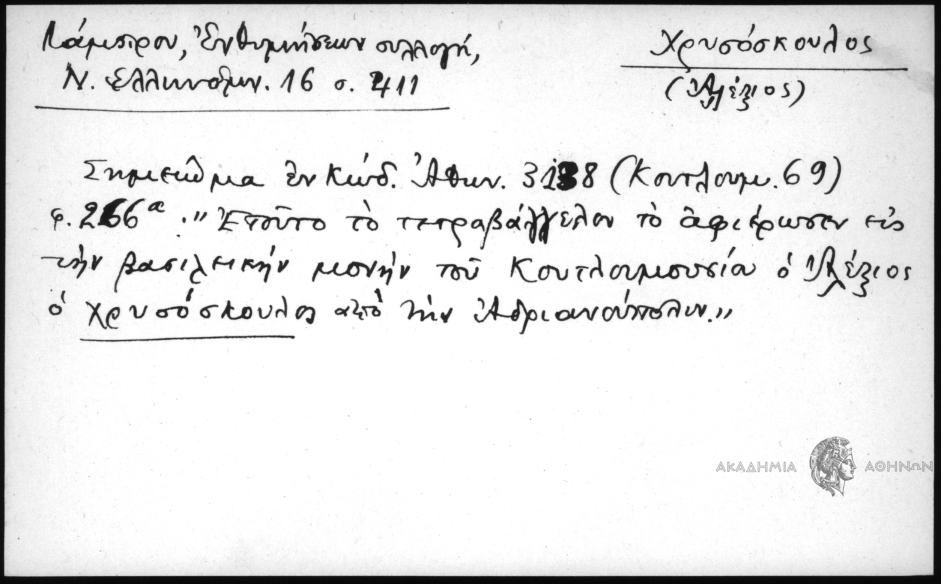 Λάμπρου, Ἐνθυμήσεων συλλογή,
Ν. Ἑλληνομν. 16 σ. 411
Χρυσόσκουλος
(Ἀλέξιος)
Σημείωμα ἐν κώδ. Ἀθων. 3138 (Κουτλουμ. 69)
φ. 266α. „Ἐτοῦτο τὸ τετραβάγγελον τὸ ἀφιέρωσεν εἰς
τὴν βασιλικὴν μονὴν τοῦ Κουτλουμουσία ὁ Ἀλέξιος
ὁ Χρυσόσκουλος ἀπὸ τὴν Ἀδριανούπολιν.„
ΑΚΑΔΗΜΙΑ ΑΘΗΝΩΝ